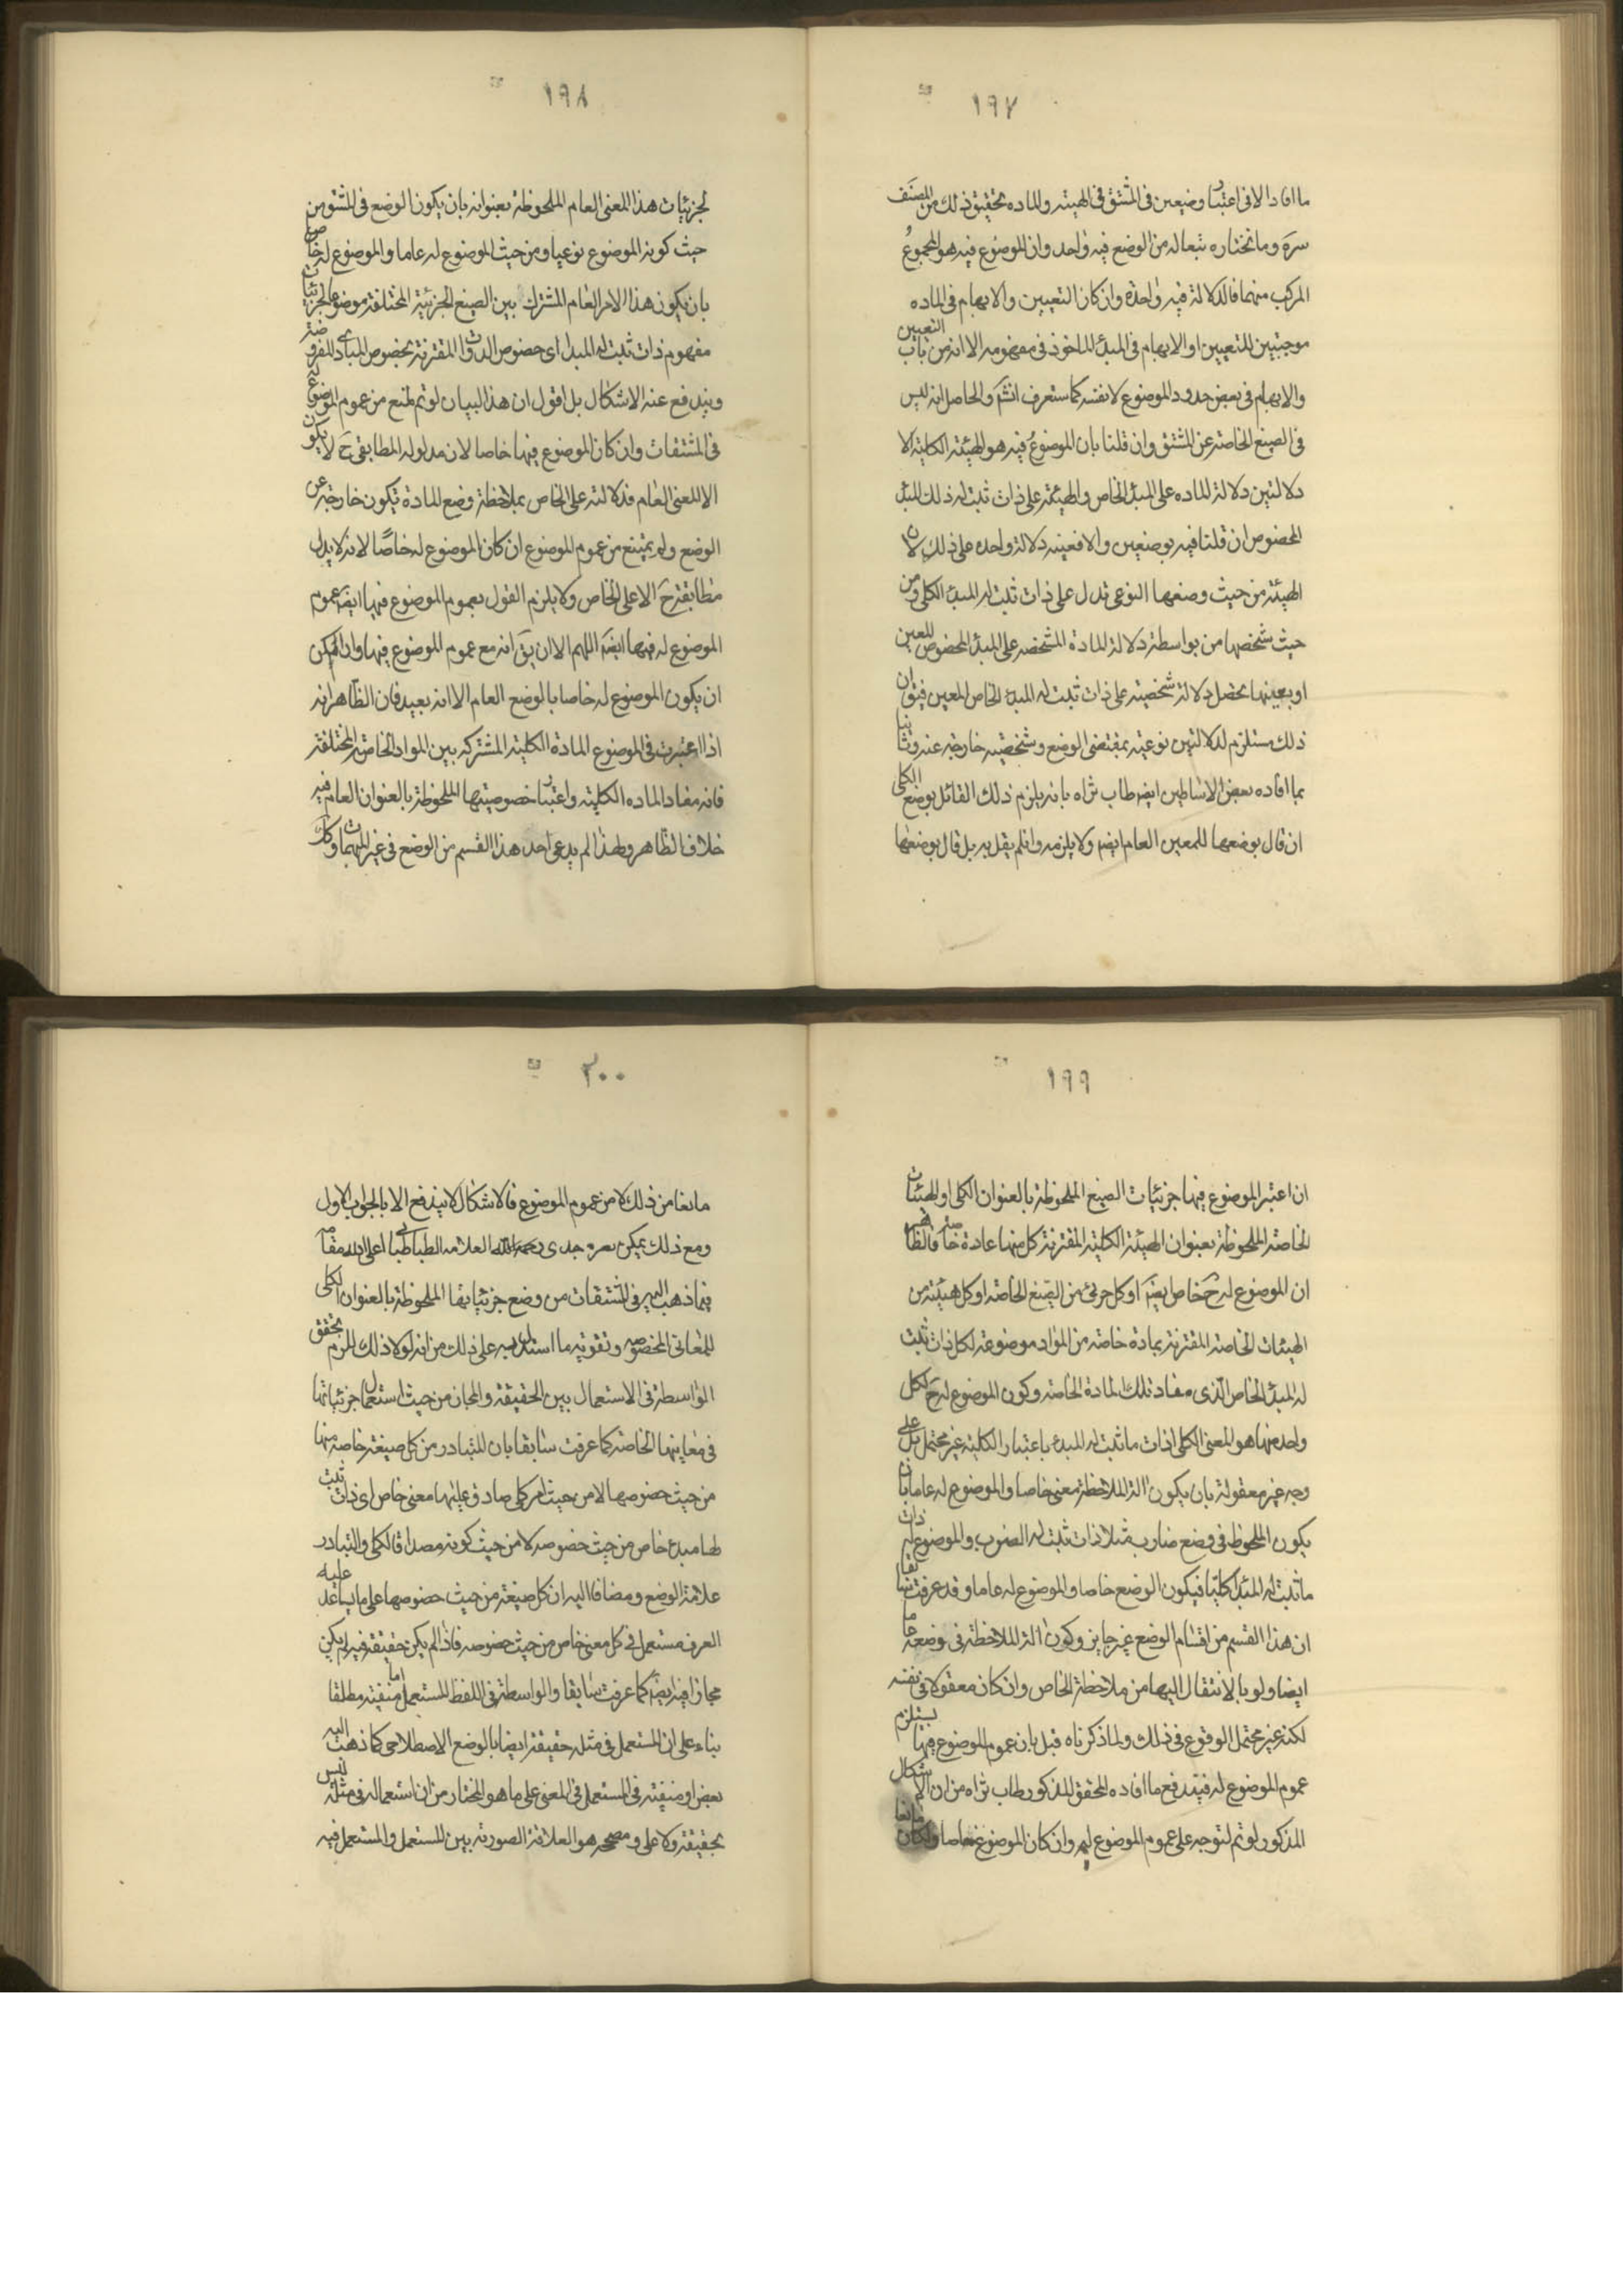 ١٩٧
ما افاد الا فی اعتبار وضعین فی المشتق فی الهیئة والماده تحقیق ذلك من المصنف
سره وما نختاره تبعا له من الوضع فیه واحد وان الموضوع فیه هو المجموع
المرکب منهما فالدلالة فیه واحدة وان کان التعیین والابهام فی الماده
موجبین للتعیین او الابهام فی المبدء الماخوذ فی مفهومه الا انه من باب التعیین
والابهام فی بعض حدود الموضوع لا نفسه کما ستعرف انشم والحاصل انه لیس
فی الصیغ الخاصة عن المشتق وان قلنا بان الموضوع فیه هو الهیئة الکلیة الا
دلالتین دلالة الماده علی المبدء الخاص والهیئة علی ذات ثبت له ذلك المبدء
المخصوص ان قلنا فیه بوضعین والا فعینه دلالة واحده علی ذلك لان
الهیئة من حیث وضعها النوعی تدل علی ذات ثبت له المبدء الکلی ومن
حیث شخصها من بواسطة دلالة المادة المشخصه علی المبدء المخصوص المعین
او بعینها تحصل دلالة شخصیة علی ذات ثبت له المبدء الخاص المعین فیق ان
ذلك مستلزم لدلالتین نوعیة بمقتضی الوضع وشخصیة خارجة عنه وثانیا
بما افاده بعض الاساطین ایضه طاب ثراه بانه یلزم ذلك القائل بوضع الکلی
ان قال بوضعها للمعین العام ایضه ولا یلزمه وان لم یقل به بل قال بوضعها
١٩٨
لجزئیات هذا المعنی العام الملحوظة بعنوانه بان یکون الوضع فی المشتق من
حیث کونه الموضوع نوعیا ومن حیث الموضوع له عاما والموضوع له خاصا
بان یکون هذا الامر العام المشترك بین الصیغ الجزئیة المختلفة موضوعا لجزئیات
مفهوم ذات ثبت له المبدا ای خصوص الذوات المقترنة بخصوص المبادی المفروضة
ویندفع عنه الاشکال بل اقول ان هذا البیان لو تم لمنع من عموم الموضوع له
فی المشتقات وان کان الموضوع فیها خاصا لان مدلوله المطابقی ح لا یکون
الا المعنی العام فدلالته علی الخاص بملاحظة وضع المادة تکون خارجة عن
الوضع ولم یمتنع من عموم الموضوع ان کان الموضوع له خاصًا لانه لا یدل
مطابقة ح الا علی الخاص ولا یلزم القول بعموم الموضوع فیها ایضه عموم
الموضوع له فیها ایضه اللهم الا ان یق انه مع عموم الموضوع فیها وان امکن
ان یکون الموضوع له خاصا بالوضع العام الا انه بعید فان الظاهر انه
اذا اعتبرت فی الموضوع المادة الکلیة المشترکه بین المواد الخاصة المختلفة
فانه مفاد الماده الکلیة واعتبار خصوصیتها الملحوظة بالعنوان العام فیه
خلاف الظاهر ولهذا لم یدعی احد هذا القسم من الوضع فی غیر المبهمات وکك
١٩٩
ان اعتبر الموضوع فیها جزئیات الصیغ الملحوظة بالعنوان الکلی او الهیئات
الخاصة الملحوظة بعنوان الهیئة الکلیة المقترنة کل منها عادة خاصة فالظاهر
ان الموضوع له ح خاص بقیه او کل جزئی من الصیغ الخاصه او کل هیئة من
الهیئات الخاصة المقترنة بمادة خاصه من المواد موضوعة لکل ذات ثبت
له المبدء الخاص الذی مفاد تلك المادة الخاصه وکون الموضوع له ح لکل
واحد منها هو المعنی الکلی ای ذات ما ثبت له المبدء باعتبار الکلیة غیر محتمل بل علی
وجه غیر معقولة بان یکون الة الملاحظة معنی خاصا والموضوع له عاما بان
یکون الملحوظ فی وضع ضارب مثلا ذات ثبت له الضرب والموضوع له ذات
ما ثبت له المبدء کلیا فیکون الوضع خاصا والموضوع له عاما وقد عرفت سابقا
ان هذا القسم من اقسام الوضع غیر جایز وکون الة الملاحظة فی وضعه عاما
ایضا ولو بالانتقال الیها من ملاحظة الخاص وان کان معقولا فی نفسه
لکنه غیر محتمل الوقوع فی ذلك ولما ذکرناه قبل بان عموم الموضوع فیها یستلزم
عموم الموضوع له فیندفع ما افاده المحقق المذکور طاب ثراه من ان الاشکال
المذکور لو تم لتوجه علی عموم الموضوع له وان کان الموضوع خاصا ولکان مانعا
٢٠٠
مانعا من ذلك لا من عموم الموضوع فالاشکال لا یندفع الا بالجواب الاول
ومع ذلك یمکن جدی العلامه الطباطبائی اعلی الله مقامه
فیما ذهب الیه فی المشتقات من وضع جزئیاتها الملحوظة بالعنوان الکلی
للمعانی المخصوصه وتقویه ما استدل به علی ذلك من انه لولا ذلك للزم تحقق
الواسطة فی الاستعمال بین الحقیقة والمجاز من حیث استعمال جزئیاتها
فی معاینها الخاصه کما عرفت سابقا بان المتبادر من کل صیغة خاصه منها
من حیث خصوصها لا من حیث امر کلی صادق علیها معنی خاص ای ذات ثبت
لها مبدء خاص من حیث خصوصه لا من حیث کونه مصداقا لکلی والتبادر
علامة الوضع ومضافا الیه ان کل صیغة من حیث خصوصها علی ما یساعد علیه
العرف مستعمل فی کل معنی خاص من حیث خصوصه فاذا لم یکن حقیقة فیه لم یکن
مجازا فیه ایضه کما عرفت سابقا والواسطة فی اللفظ المستعمل اما منفیته مطلقا
بناء علی ان المستعمل فی مثله حقیقة ایضا بالوضع الاصطلاحی کما ذهب الیه
بعض او منفیته فی المستعمل فی المعنی علی ما هو المختار من ان استعماله فی مثله لیس
بحقیقة ولا علی ومصححه هو العلاقة الصوریة بین المستعمل والمستعمل فیه